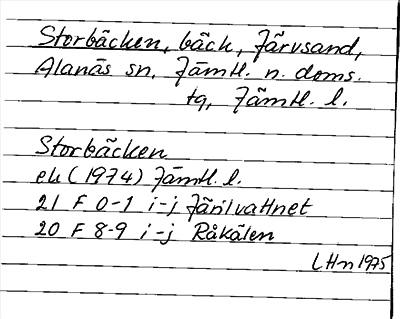 Storbäcken, bäck, Järvsand,
Alanäs sn, Jämtl. n. doms.
tg, Jämtl. l.
Storbäcken
ek (1974) Jämtl. l.
21 F 0-1 i-j Järilvattnet
20 F 8-9 i-j Råkälen
LHn 1975